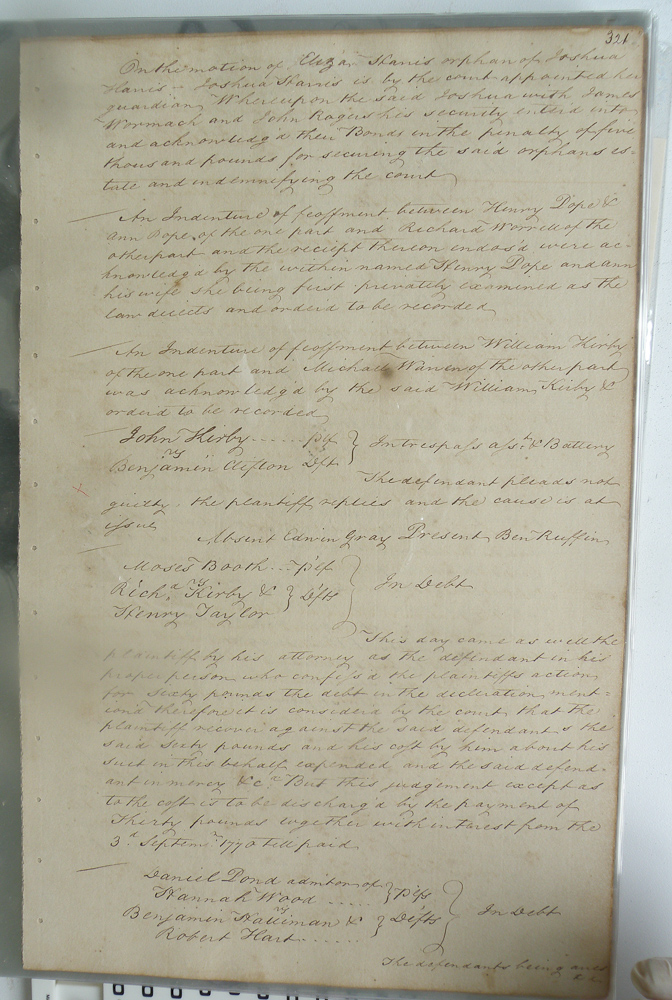 321
On the motion of Eliza Harris orphan of Joshua
Harris - Joshua Harris is by the court appointed her
guardian, Whereupon the said Joshua with James
Wormach and John Rogers his security enterd into
and acknowledg'd their Bond in the penalty of five
thousand pounds for securing the said orphans es-
tate and indemnifying the court
An Indenture of feoffment between Henry Pope &
Ann Pope of the one part and Richard Worrell of the
other part and the reciept thereon endors'd were ac-
knowledg'd by the within named Henry Pope and ann
his wife she being first privately examined as the
law directs and orderd to be recorded
An Indenture of feoffment between William Kirby
of the one part and Michael Warren of the other part
was acknowledg'd by the said William Kirby &
orderd to be recorded
John Kirby ...... Plf } In trespass asst. & Battery
vs
Benjamin Clifton Deft
The defendant pleads not
guilty, the plaintiff replies and the cause is at
issue
Absent Edwin Gray Present Ben Ruffin
Moses Booth ... Plf
vs
Richd. Kirby & } Defts } In Debt
Henry Taylor
This day came as well the
plaintiff by his attorney as the defendant in his
proper person who confess'd the plaintiffs action
for sixty pounds the debt in the decleration ment-
iond therefore it is considerd by the court that the
plaintiff recover against the said defendants the
said sixty pounds and his cost by him about his
suit in this behalf expended and the said defend-
ant in mercy &c. But this judgement except as
to the cost is to be discharg'd by the payment of
Thirty pounds together with interest from the
3d. Septemr. 1770 till paid
Daniel Pond admtor of } Plfs
Hannah Wood .....
vs
Benjamin Halliman & } Defts } In Debt
Robert Hart .....
The defendants being